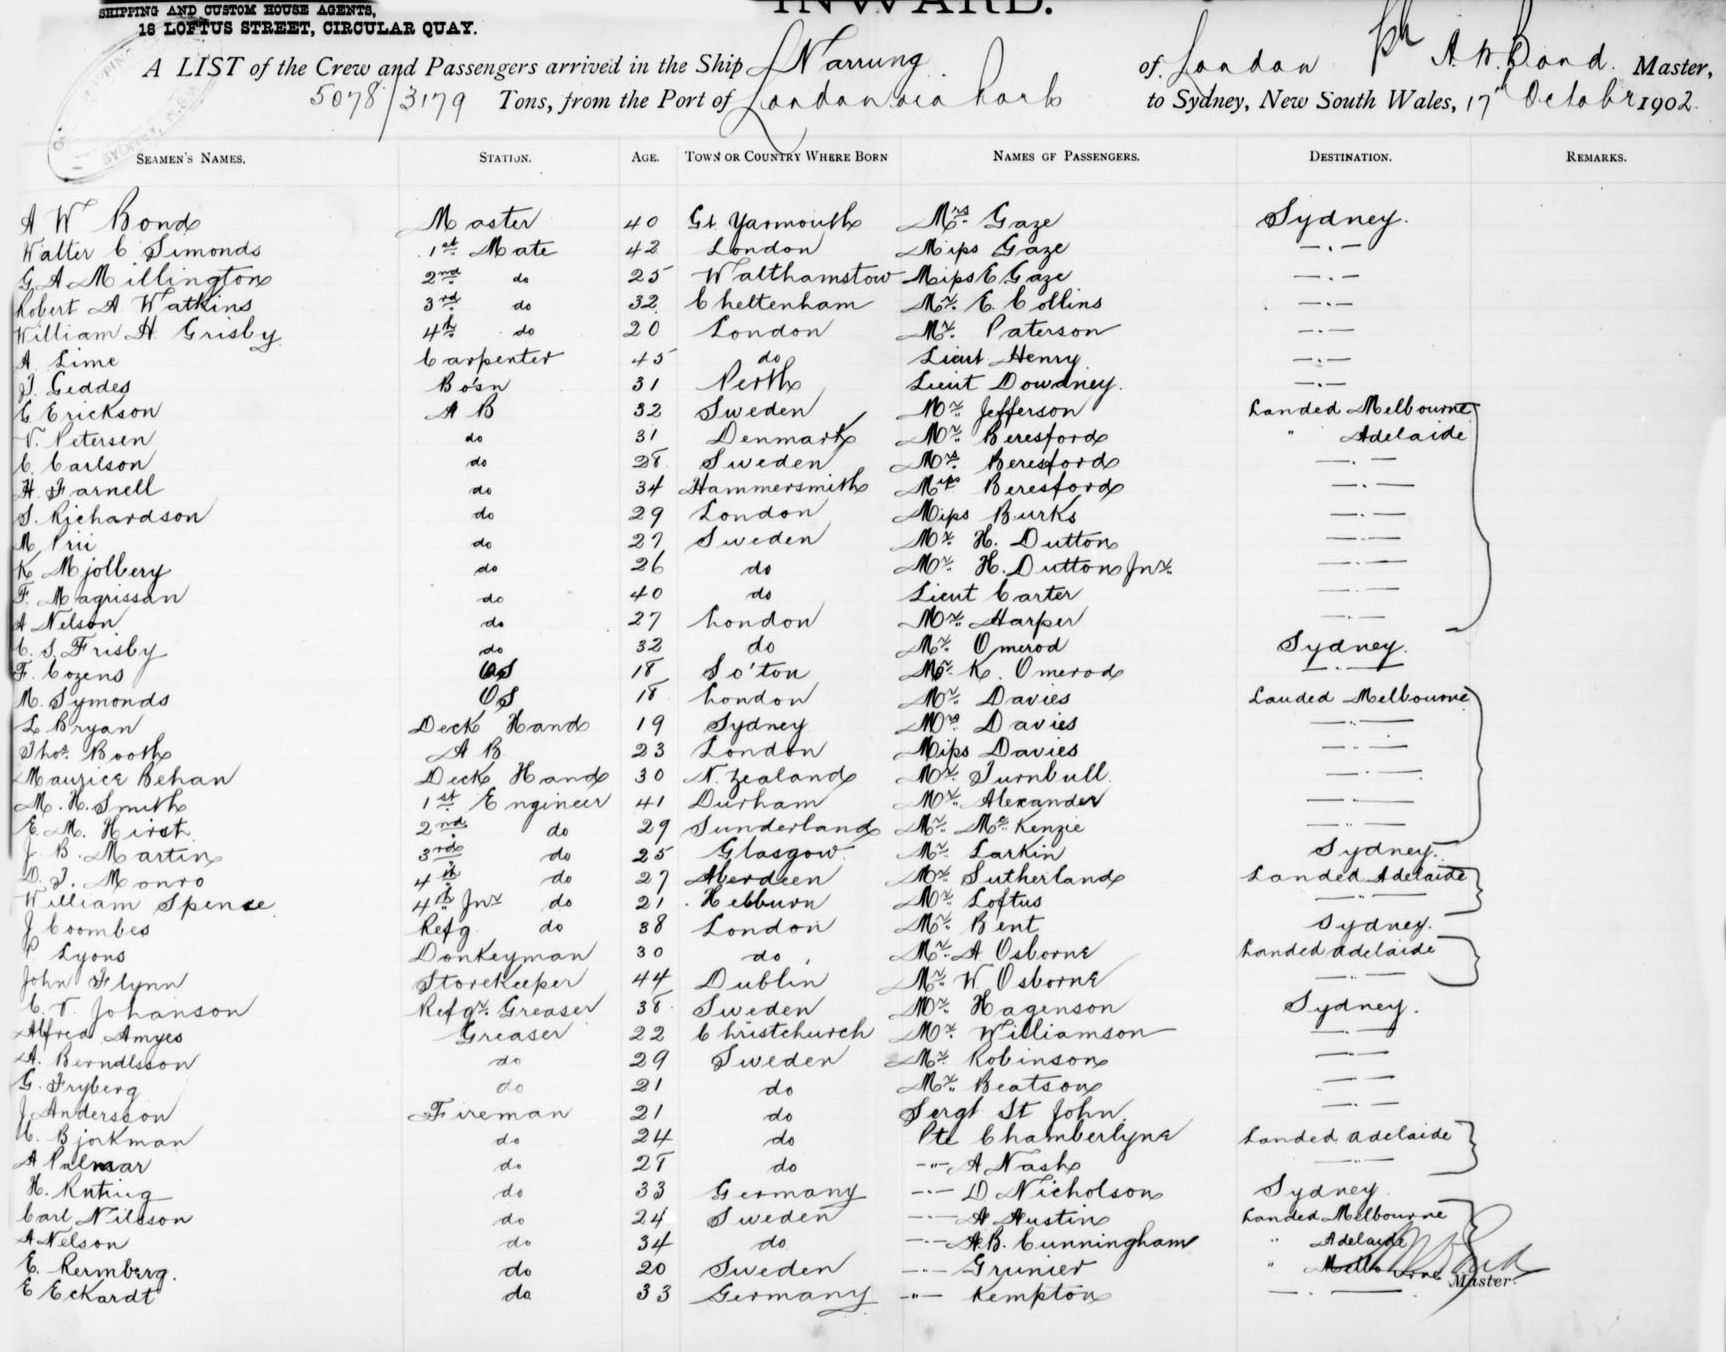 SHIPPING AND CUSTOM HOUSE AGENTS,
18 LOFTUS STREET, CIRCULAR QUAY.
INWARD.
A LIST of the Crew and Passengers arrived in the Ship Narrung of London A. W. Bond. Master,
5078/3179 Tons, from the Port of London via Ports to Sydney, New South Wales, 17th October 1902.
SEAMEN'S NAMES. STATION. AGE. TOWN OR COUNTRY WHERE BORN NAMES OF PASSENGERS. DESTINATION. REMARKS.
A W Bond Master 40 Gt Yarmouth Mrs Gaze Sydney.
Walter C Simonds 1st Mate 42 London Miss Gaze —.—
G A Millington 2nd do 25 Walthamstow Miss E Gaze —.—
Robert A Watkins 3rd do 32 Cheltenham Mr. E Collins —.—
William H Grisby 4th do 20 London Mr. Paterson —.—
A Lime Carpenter 45 do Lieut Henry —.—
J. Geddes Bo'sn 31 Perth Lieut Dowdney. —.—
G Erickson A B 32 Sweden Mr. Jefferson Landed Melbourne
V. Petersen do 31 Denmark Mr. Beresford " Adelaide
C. Carlson do 28 Sweden Mrs Beresford —.—
H. Farnell do 34 Hammersmith Miss Beresford —.—
S. Richardson do 29 London Miss Burks —.—
M Prii do 27 Sweden Mr. H. Dutton —.—
K Mjolbery do 26 do Mr. H. Dutton Jnr. —.—
F. Magrissan do 40 do Lieut Carter —.—
A Nelson do 27 London Mr. Harper —.—
C. S. Frisby do 32 do Mr. Omerod Sydney.
F. Cozens OS 18 So'ton Mr. K. Omerod —.—
M. Symonds OS 18 London Mr. Davies Landed Melbourne
L Bryan Deck Hand 19 Sydney Mrs Davies —.—
Thos. Booth A B 23 London Miss Davies —.—
Maurice Behan Deck Hand 30 N. Zealand Mr. Turnbull —.—
M. H. Smith 1st Engineer 41 Durham Mr. Alexander —.—
E. M. Hirst 2nd do 29 Sunderland Mr. McKenzie —.—
J B. Martin 3rd do 25 Glasgow Mr. Larkin Sydney.
D. J. Monro 4th do 27 Aberdeen Mr. Sutherland Landed Adelaide
William Spence 4th Jnr do 21 Hebburn Mr. Loftus —.—
J Coombes Refg. do 38 London Mr. Bent Sydney.
P Lyons Donkeyman 30 do Mr. A Osborne Landed Adelaide
John Flynn Storekeeper 44 Dublin Mr. W Osborne —.—
C. T. Johanson Refgr. Greaser 38 Sweden Mr. Hagenson Sydney.
Alfred Amyes Greaser 22 Christchurch Mr. Williamson —.—
A. Berndlsson do 29 Sweden Mr. Robinson —.—
G. Fryberg do 21 do Mr. Beatson —.—
J Andersson Fireman 21 do Sergt St John —.—
C. Bjorkman do 24 do Pte Chamberlyne Landed Adelaide
A Palmar do 28 do —"— A Nash —.—
H. Ruting do 33 Germany —"— D Nicholson Sydney
Carl Nilsson do 24 Sweden —"— A Austin Landed Melbourne
A Nelson do 34 do —"— A.B. Cunningham " Adelaide
E. Rermberg. do 20 Sweden —"— Grunier " Melbourne
E Eckardt do 33 Germany —"— Kempton —.—
Master.